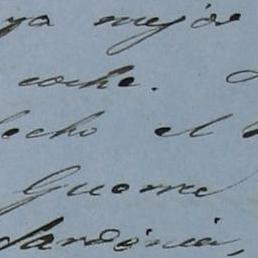 ya mejor
coche.
hecho el
Guerre
Sardónia,